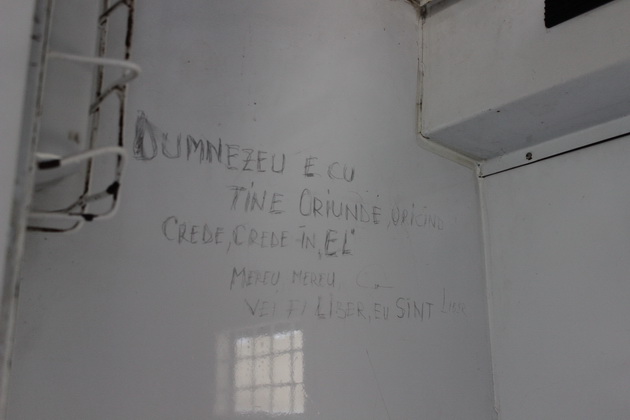 DUMNEZEU E CU
TINE ORIUNDE, ORICÎND
CREDE, CREDE ÎN "EL"
MEREU, MEREU, CĂ
VEI FI LIBER, EU SÎNT LIBER